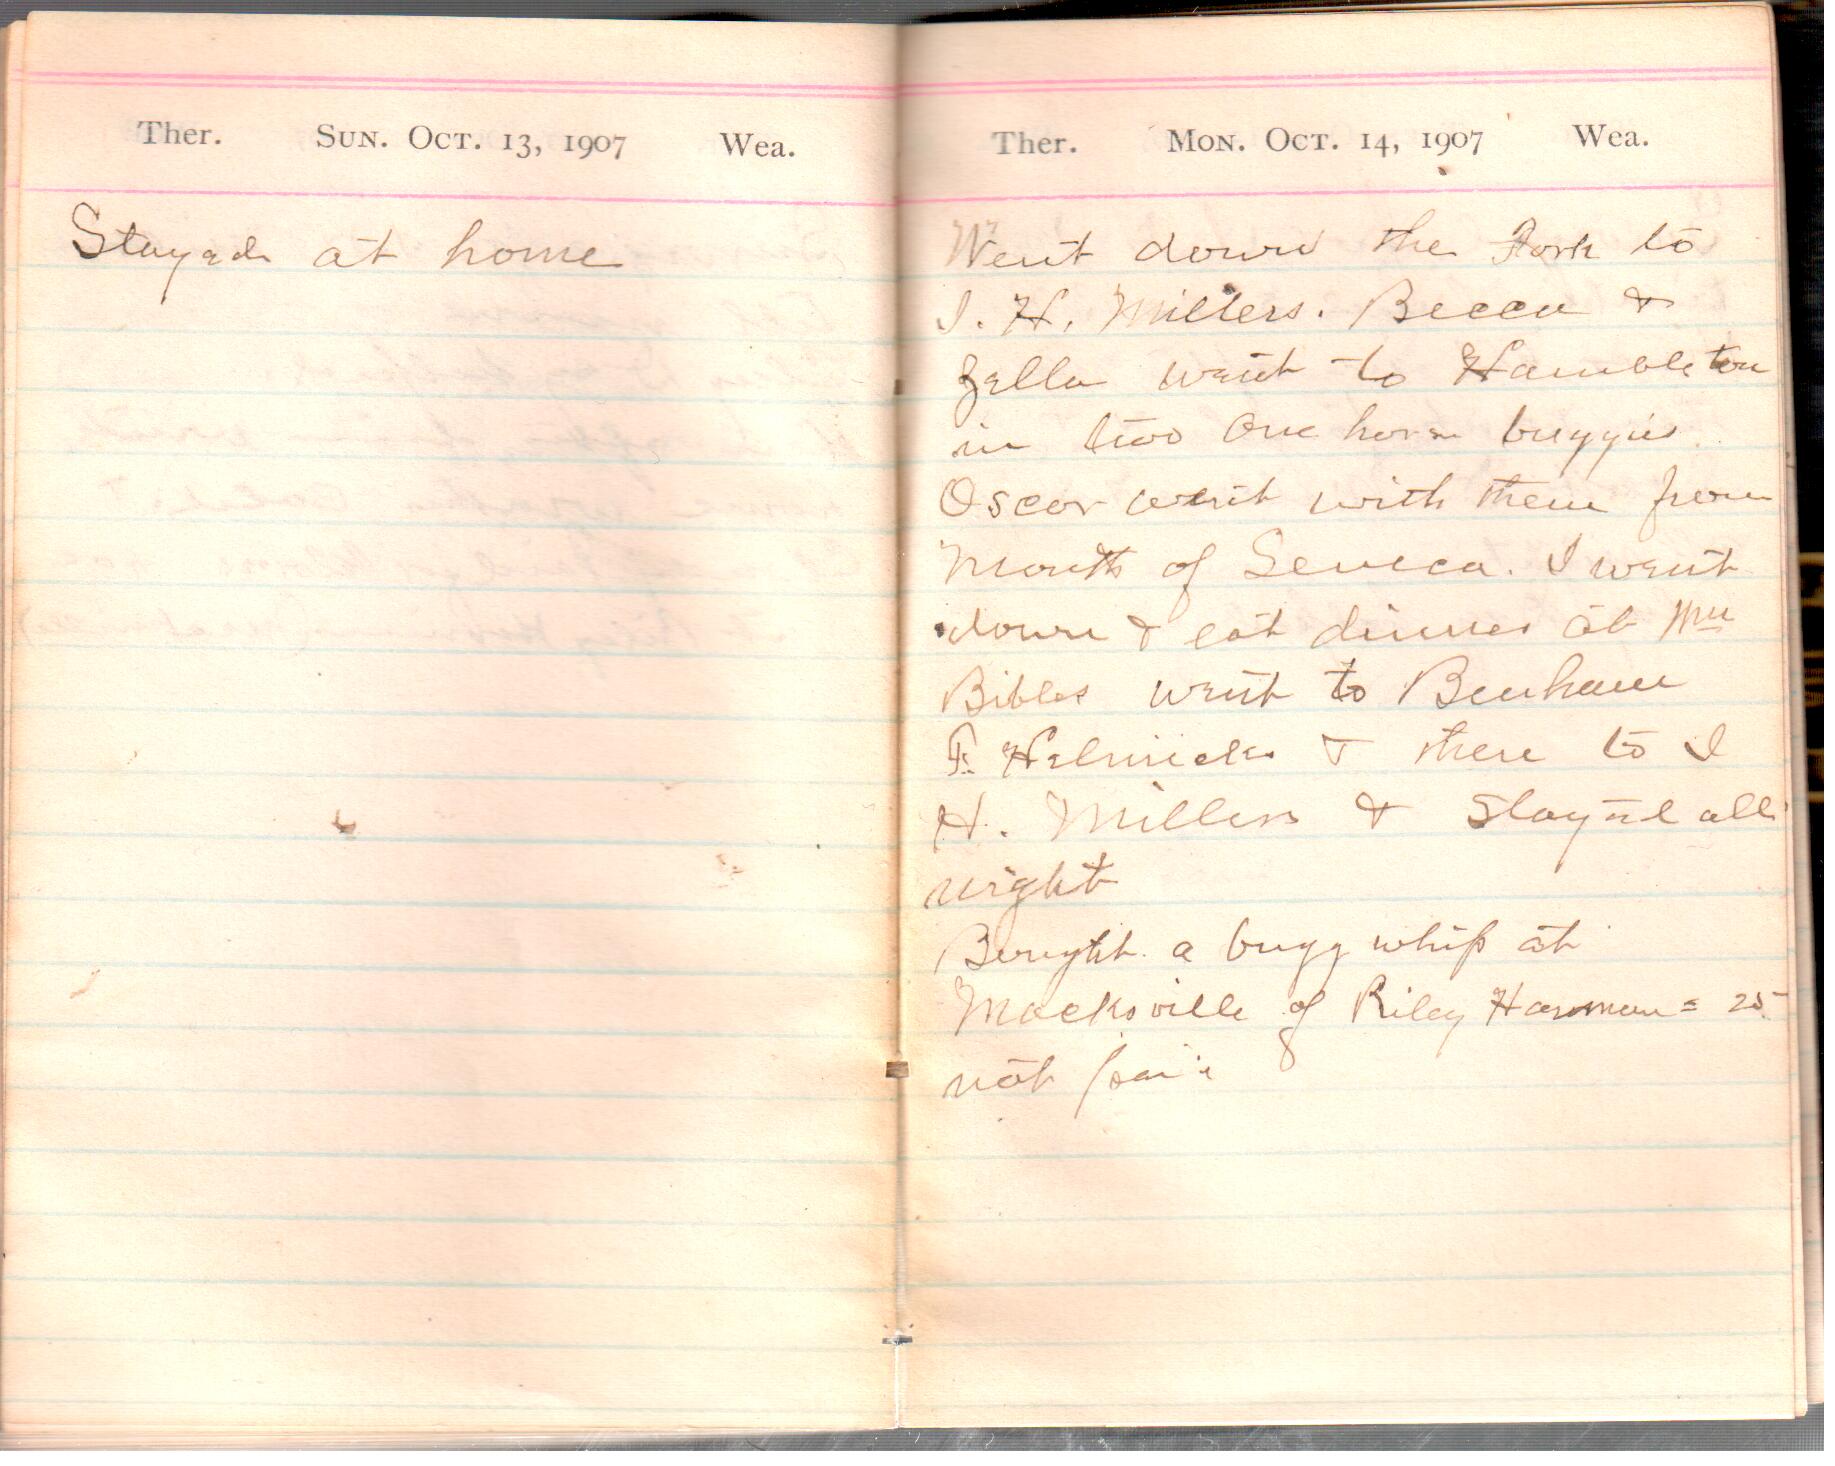 Ther. Sun. Oct. 13, 1907 Wea.
Stayed at home
Ther. Mon. Oct. 14, 1907 Wea.
Went down the Fork to
I. H. Millers. Becca &
Zella went to Hambleton
in two one horse buggies
Oscar went with them from
Mouth of Seneca. I went
down & eat dinner at Mrs
Bibles went to Benham
F. Helmicks & then to I
H. Millers & Stayed all
night
Bought a bugg whip at
Macksville of Riley Harman = 25
not